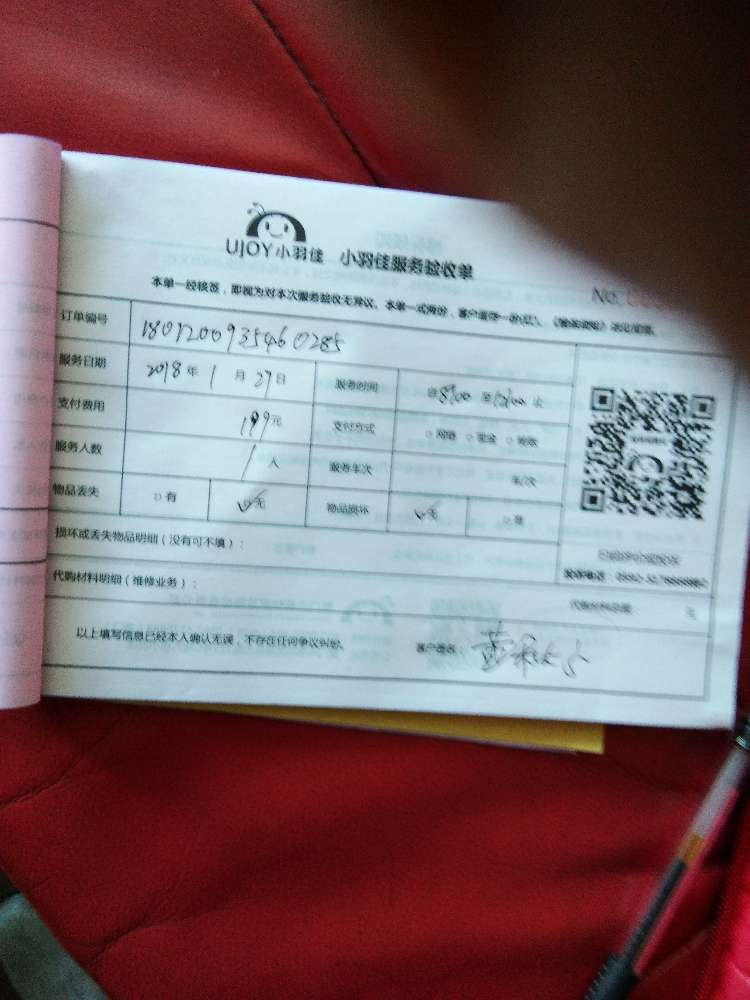 UJOY小羽佳 小羽佳服务验收单
No.
本单一经核签，即视为对本次服务验收无异议。本单一式两份，客户留存一份
订单编号 1801200935460285
服务日期 2018年1月27日 服务时间 自8:00至
支付费用 199元 支付方式 □ 网络 □ 现金 □
服务人数 1人 服务车次 车/次
物品丢失 □有 ☑无 物品损坏 ☑无 □有
损坏或丢失物品明细（没有可不填）：
代购材料明细（维修业务）： 元
以上填写信息已经本人确认无误，不存在任何争议纠纷。 客户签名：